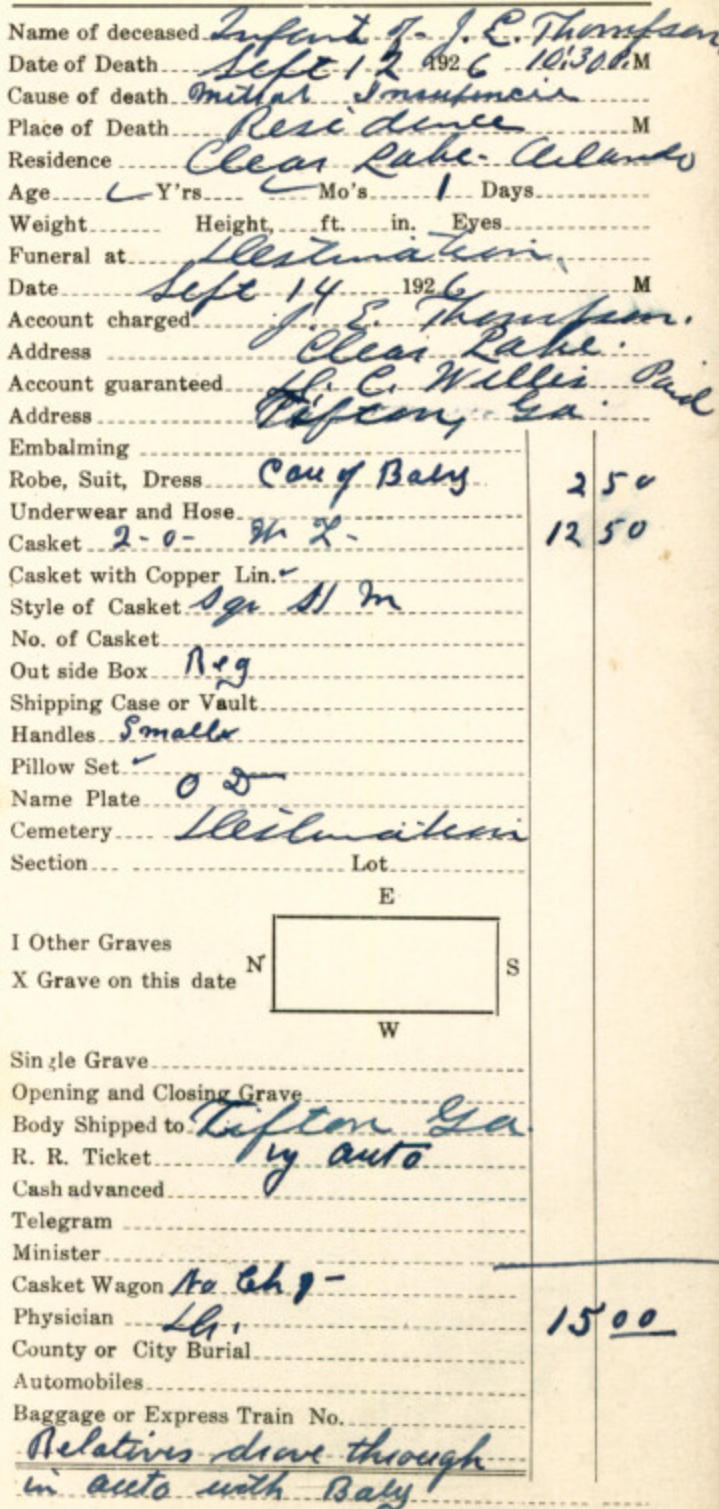 Name of deceased Infant of J. E. Thompson
Date of Death Sept 12 1926 10:30 P. M
Cause of death Mitral
Place of Death Residence M
Residence Clear Lake - Orlando
Age Y'rs Mo's 1 Days
Weight Height, ft. in. Eyes
Funeral at Destination
Date Sept 14 1926 M
Account charged J. E. Thompson.
Address Clear Lake.
Account guaranteed C. Willis Paid
Address Tifton, Ga.
Embalming
Robe, Suit, Dress Care of Baby 2 50
Underwear and Hose
Casket 2-0- 12 50
Casket with Copper Lin. ✓
Style of Casket Sqr
No. of Casket
Out side Box Reg
Shipping Case or Vault
Handles Small
Pillow Set ✓
Name Plate O D
Cemetery Destination
Section Lot
E
I Other Graves
N S
X Grave on this date
W
Single Grave
Opening and Closing Grave
Body Shipped to Tifton Ga.
R. R. Ticket by auto
Cash advanced
Telegram
Minister
Casket Wagon No Chg -
Physician 15 00
County or City Burial
Automobiles
Baggage or Express Train No.
Relatives drove through
in auto with Baby